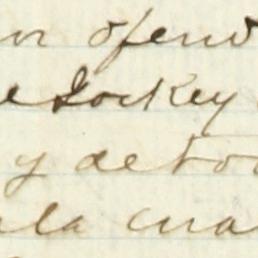 ofend
Jockey
y de to
la cua